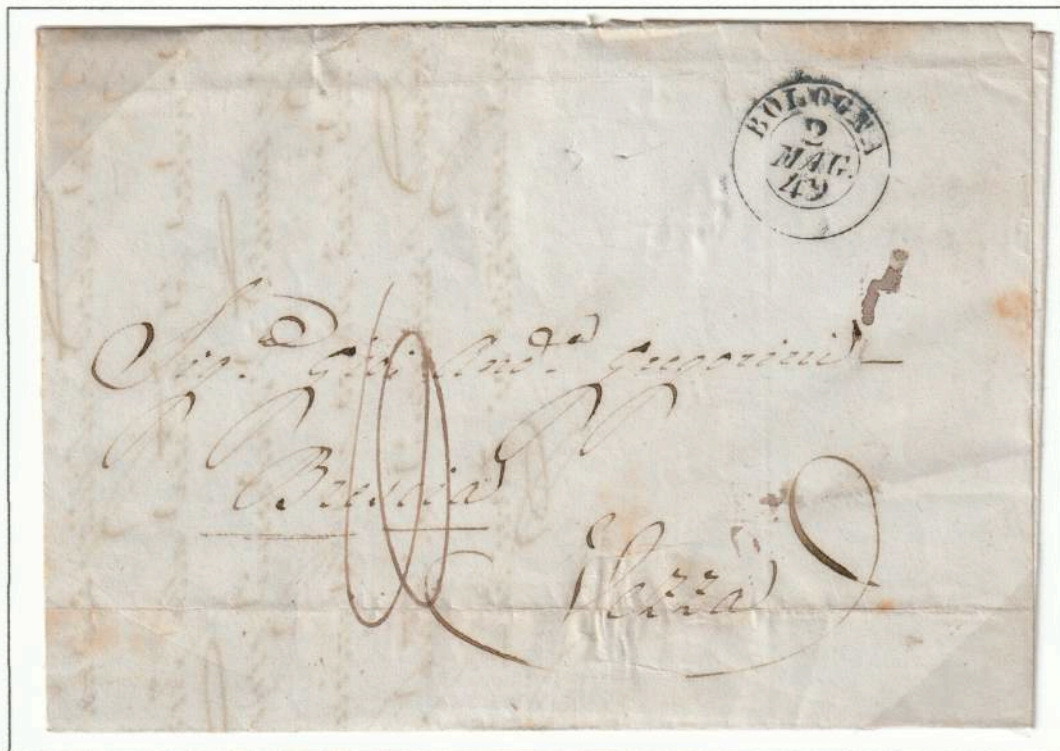 BOLOGNA
2
MAG.
49
Sig.r Gio. And.a Gregorini
Brescia
Vezza